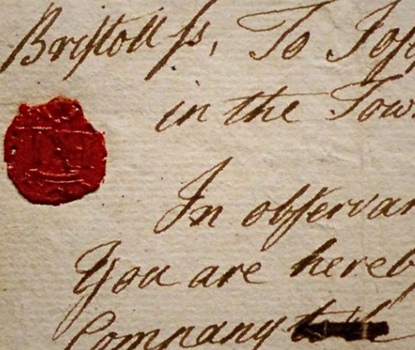 Bristoll ss, To Jos
in the Tow
In observan
You are hereb
Company to the